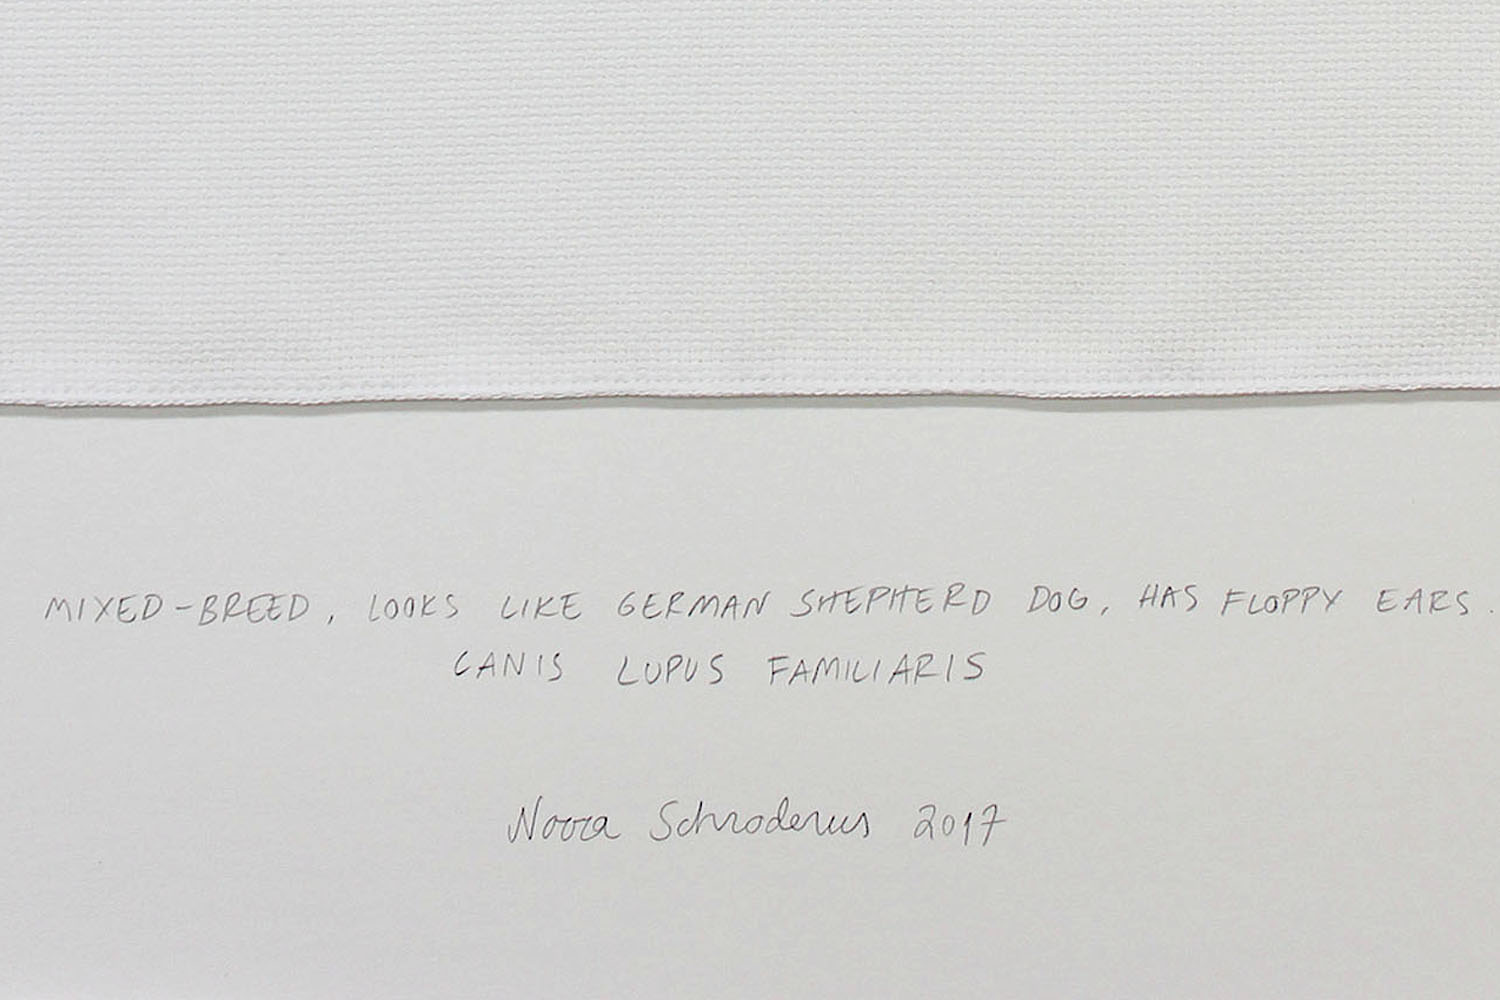 MIXED-BREED, LOOKS LIKE GERMAN SHEPHERD DOG, HAS FLOPPY EARS.
CANIS LUPUS FAMILIARIS
Noora Schroderus 2017